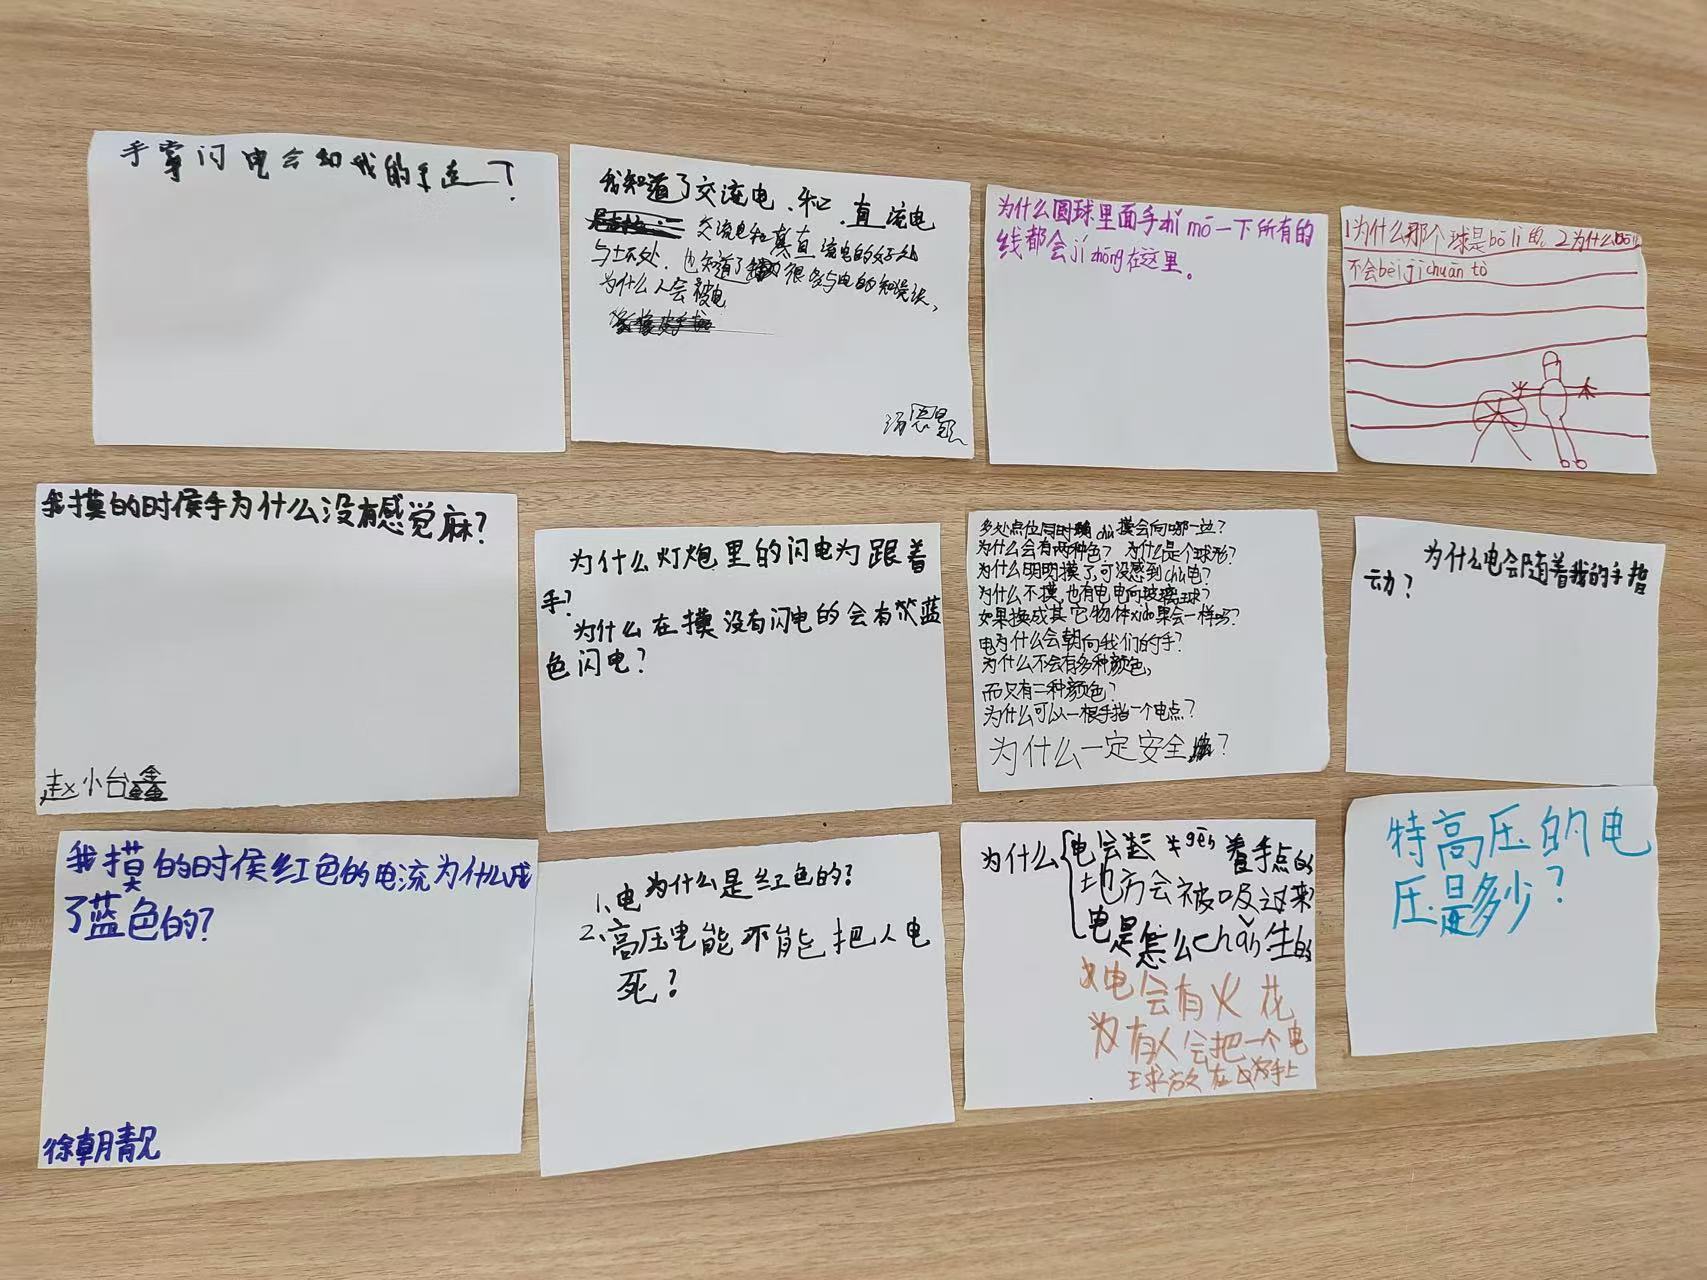 手掌闪电会和我的手连
我知道了交流电、和、直流电
交流电和直流电的好处
与坏处,也知道了很多与电的知识,
为什么人会被电
为什么圆球里面手zhǐ mō一下所有的
线都会jí zhōng在这里。
1为什么那个球是bō lí的, 2为什么bō lí
不会bèi jī chuān tò
我摸的时候手为什么没有感觉麻?
赵小台鑫
为什么灯炮里的闪电为跟着
手?
为什么在摸没有闪电的会有蓝
色闪电?
多处点位同时chù摸会向哪一边?
为什么会有两种色? 为什么是个球形?
为什么明明摸了,可没感到chù电?
为什么不摸,也有电电向玻璃球?
如果换成其它物体xiào果会一样吗?
电为什么会朝向我们的手?
为什么不会有多种颜色,
而只有二种颜色?
为什么可以一根手指一个电点?
为什么一定安全?
为什么电会随着我的手指
动?
我摸的时侯红色的电流为什么成
了蓝色的?
徐朝靓
1、电为什么是红色的?
2、高压电能不能把人电
死?
为什么 电会gēn着手点的
地方会被吸过来?
电是怎么chǎn生的
电会有火花
有人会把一个电
球放在手上
特高压的电
压是多少?